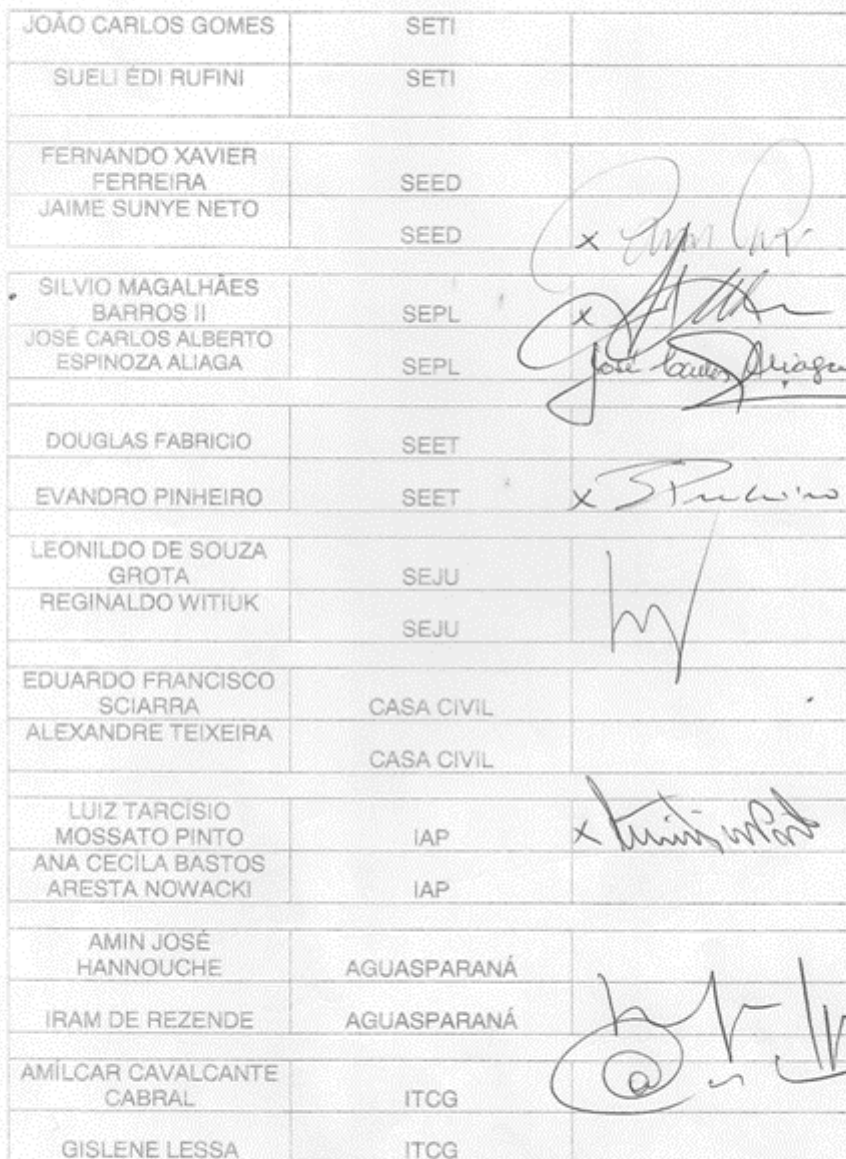 JOÃO CARLOS GOMES SETI
SUELI ÉDI RUFINI SETI
FERNANDO XAVIER
FERREIRA SEED
JAIME SUNYE NETO
SEED x
SILVIO MAGALHÃES
BARROS II SEPL x
JOSÉ CARLOS ALBERTO
ESPINOZA ALIAGA SEPL José Carlos Aliaga
DOUGLAS FABRICIO SEET
EVANDRO PINHEIRO SEET x
LEONILDO DE SOUZA
GROTA SEJU
REGINALDO WITIUK
SEJU
EDUARDO FRANCISCO
SCIARRA CASA CIVIL
ALEXANDRE TEIXEIRA
CASA CIVIL
LUIZ TARCÍSIO
MOSSATO PINTO IAP x
ANA CECÍLA BASTOS
ARESTA NOWACKI IAP
AMIN JOSÉ
HANNOUCHE AGUASPARANÁ
IRAM DE REZENDE AGUASPARANÁ
AMÍLCAR CAVALCANTE
CABRAL ITCG
GISLENE LESSA ITCG